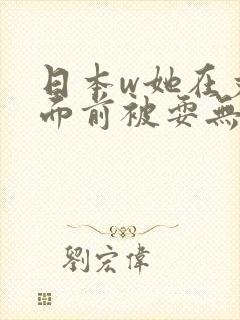 日本w她在
而前被耍無
劉宏偉